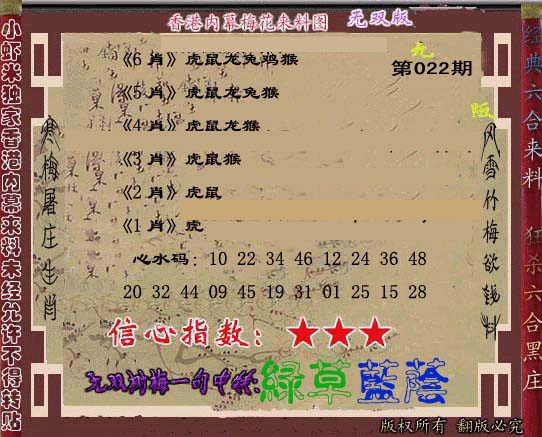 香港内幕梅花来料图 无双版
九
《6 肖》虎鼠龙兔鸡猴
第022期
《5 肖》虎鼠龙兔猴
《4 肖》虎鼠龙猴
《3 肖》虎鼠猴
《2 肖》虎鼠
《1 肖》虎
心水码：10 22 34 46 12 24 36 48
20 32 44 09 45 19 31 01 25 15 28
信心指数：★★★
无双梅一句中特:綠草藍蔭
版权所有 翻版必究
小虾米独家香港内幕来料未经允许不得转贴
寒梅屠庄生肖
风雪竹梅欲钱料
经典六合来料
狂杀六合黑庄